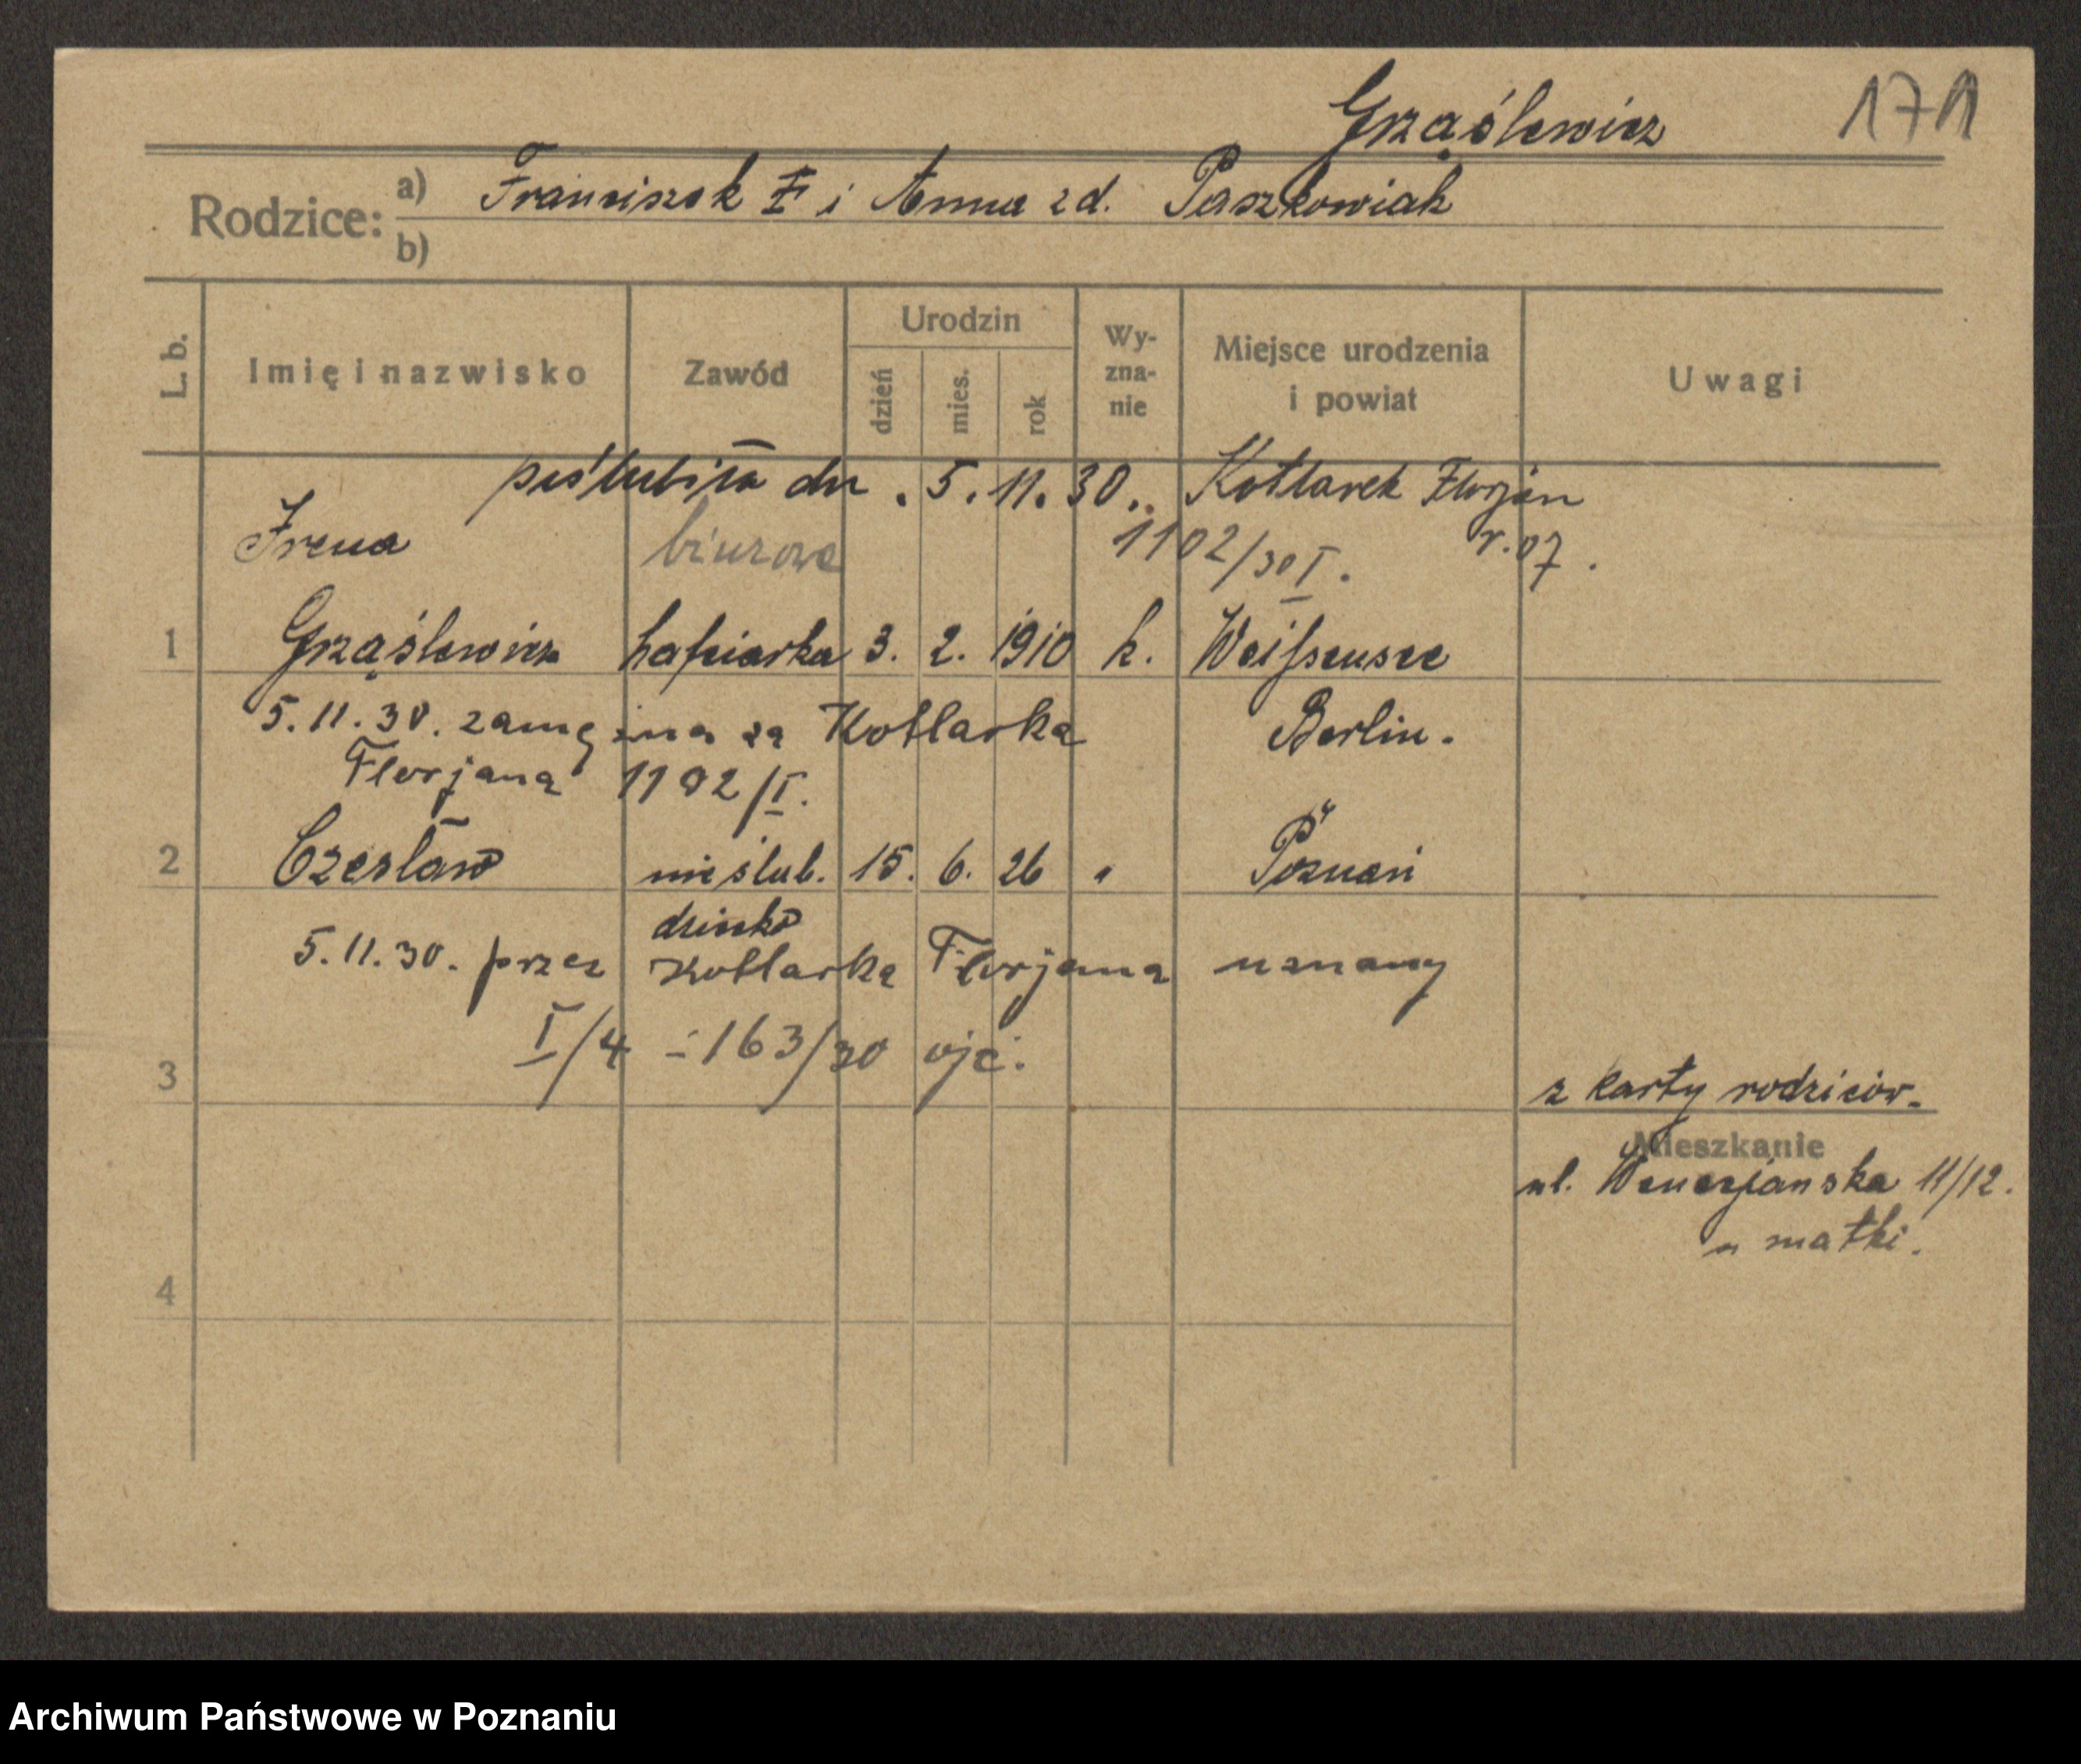 Grząślewicz 171
Rodzice: a) Franciszek I i Anna zd. Paszkowiak
b)
L. b. Imię i nazwisko Zawód Urodzin dzień mies. rok Wy-zna-nie Miejsce urodzenia i powiat Uwagi
poślubiła dn. 5. 11. 30. Kotlarek Florjan
Irena biurowa 1102/30 I. r. 07.
1 Grząślewicz hafciarka 3. 2. 1910 k. Weißensee
5. 11. 30. zamężna za Kotlarka Berlin.
Florjana 1102/I.
2 Czesław nieślub. 15. 6. 26 " Poznań
dziecko
5. 11. 30. przez Kotlarka Florjana uznany
I/4 - 163/30 ojc.
3
z karty rodziców.
Mieszkanie
ul. Wenecjańska 11/12.
u matki.
4
Archiwum Państwowe w Poznaniu